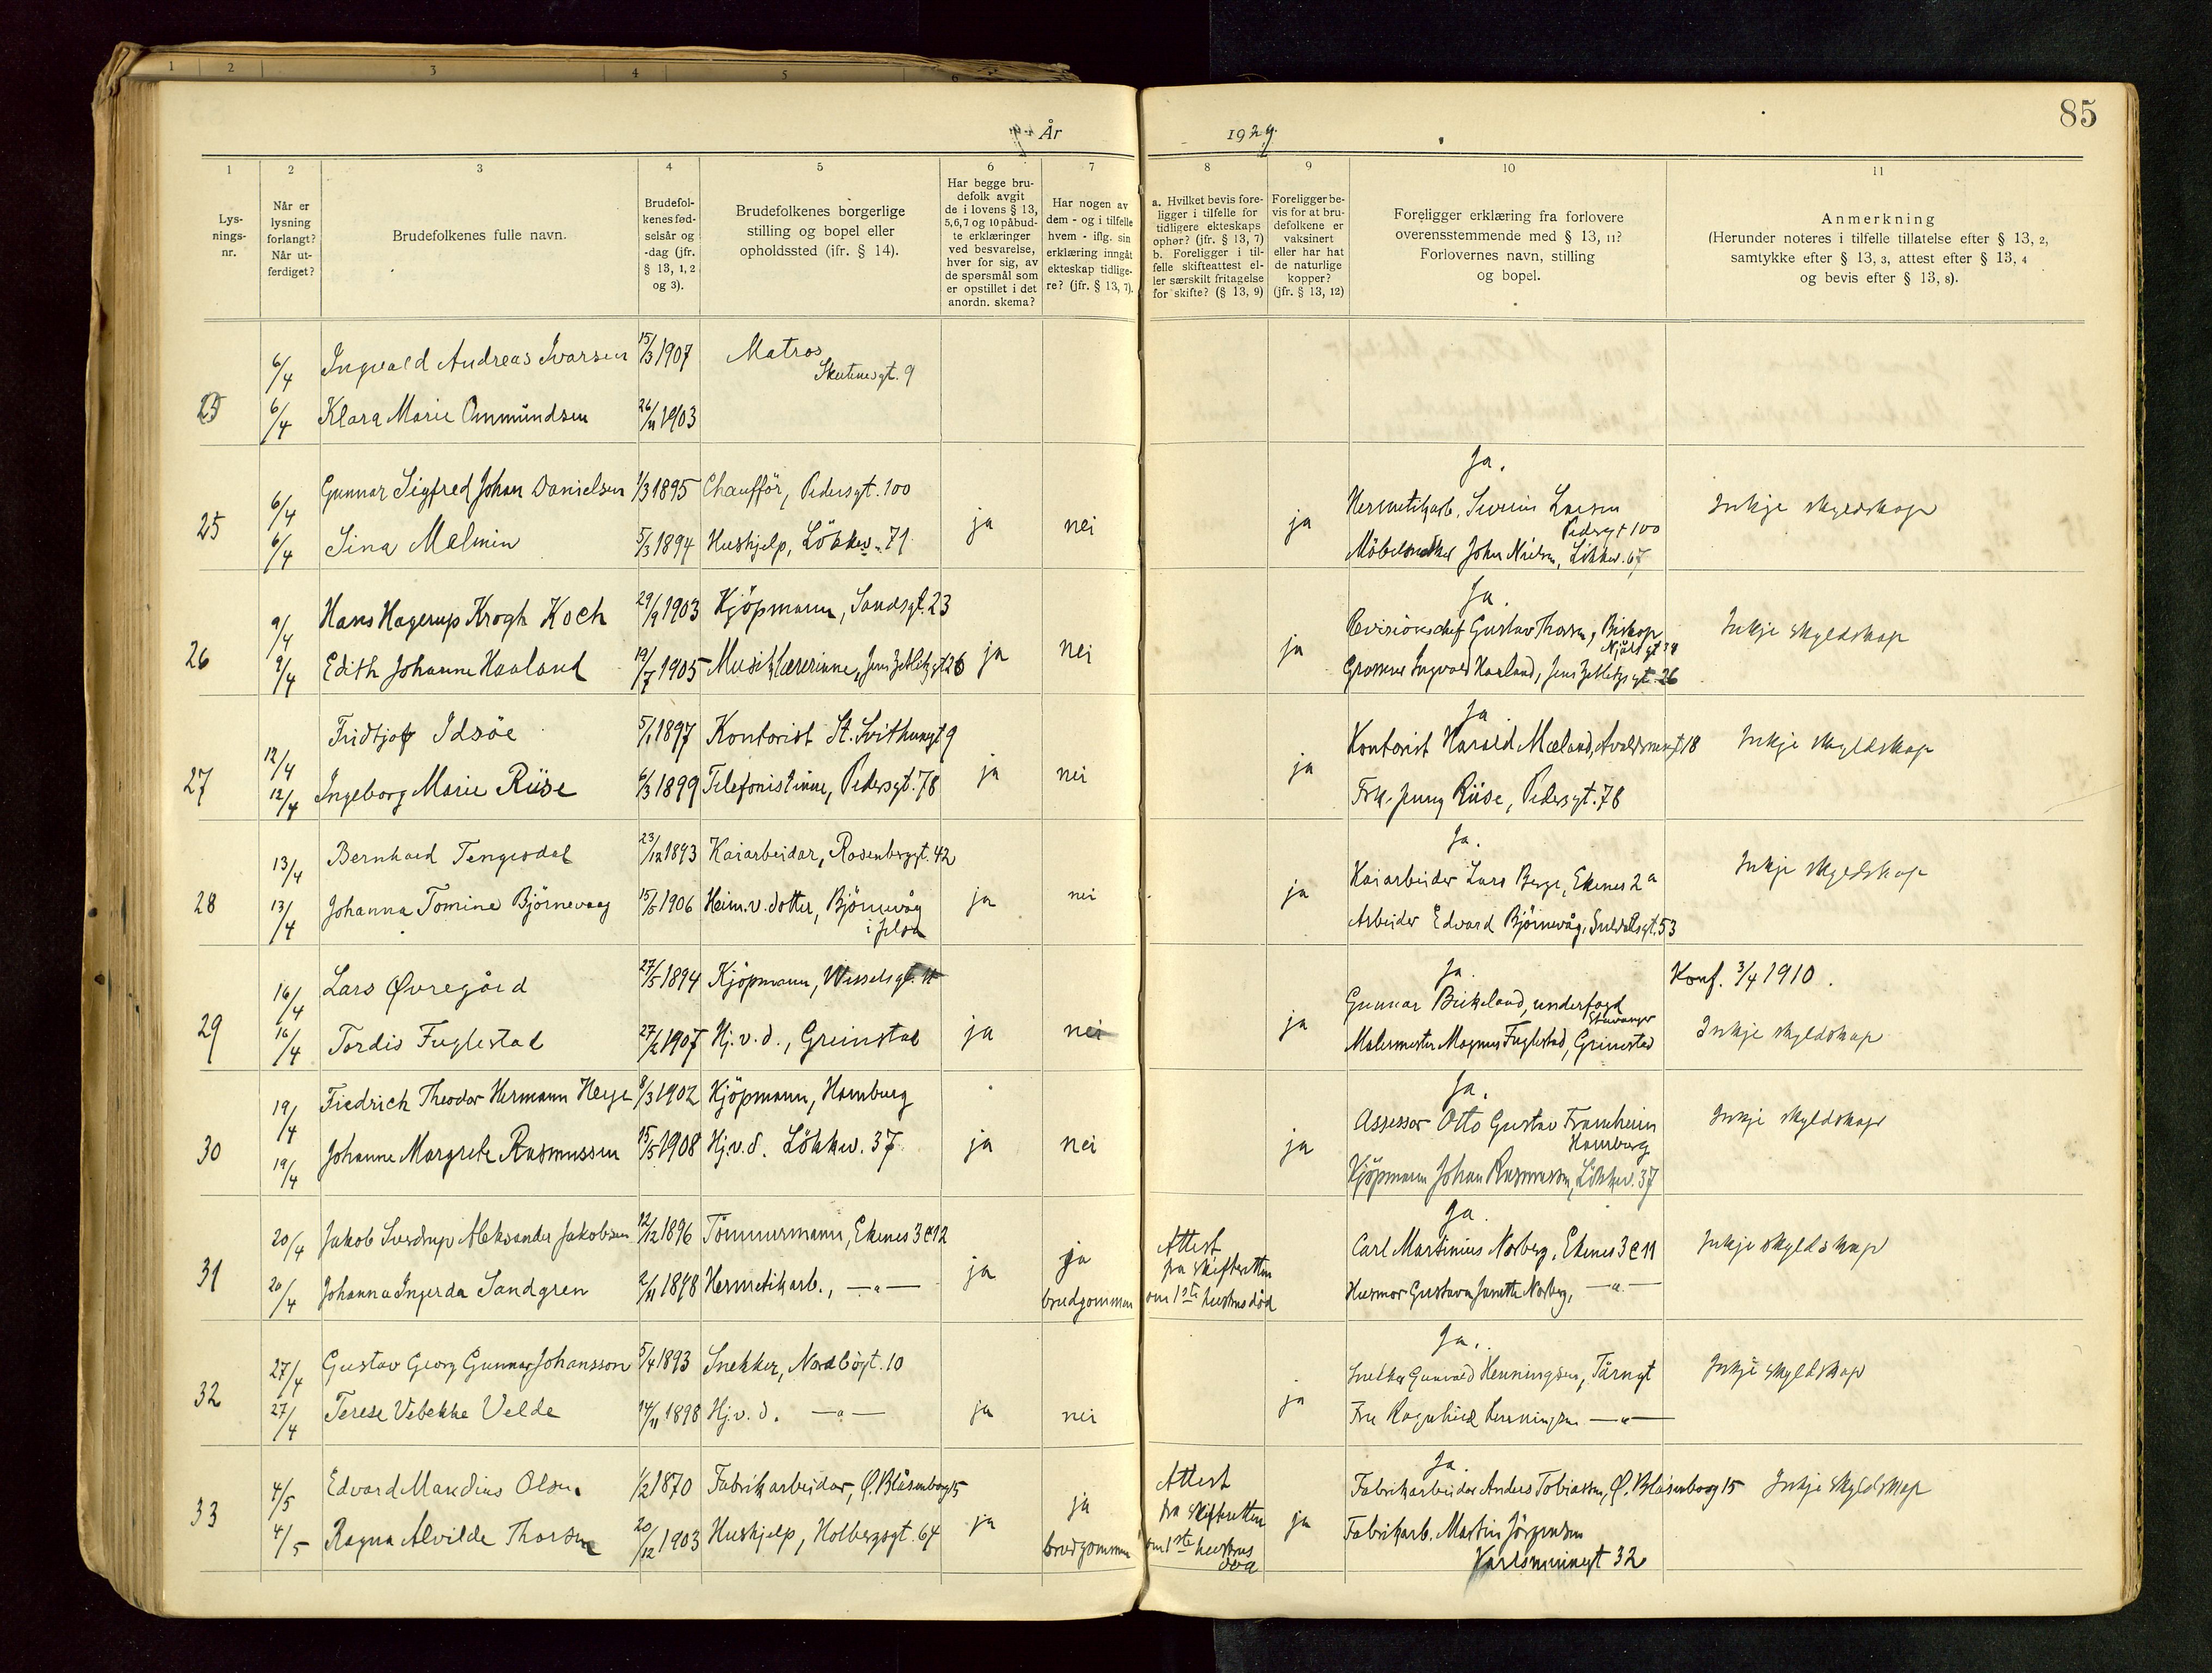 1 2 3 4 5 6
85
År 1929.
1 2 3 4 5 6 7 8 9 10 11
Lys-
nings-
nr.
Når er
lysning
forlangt?
Når ut-
ferdiget?
Brudefolkenes fulle navn.
Brudefol-
kenes fød-
selsår og
-dag (jfr.
§ 13, 1, 2
og 3).
Brudefolkenes borgerlige
stilling og bopel eller
opholdssted (jfr. § 14).
Har begge bru-
defolk avgit
de i lovens § 13,
5,6,7 og 10 påbud-
te erklæringer
ved besvarelse,
hver for sig, av
de spørsmål som
er opstillet i det
anordn. skema?
Har nogen av
dem - og i tilfelle
hvem - iflg. sin
erklæring inngåt
ekteskap tidlige-
re? (jfr. § 13, 7).
a. Hvilket bevis fore-
ligger i tilfelle for
tidligere ekteskaps
ophør? (jfr. § 13, 7)
b. Foreligger i til-
felle skifteattest el-
ler særskilt fritagelse
for skifte? (§ 13, 9)
Foreligger be-
vis for at bru-
defolkene er
vaksinert
eller har hat
de naturlige
kopper?
(jfr. § 13, 12)
Foreligger erklæring fra forlovere
overensstemmende med § 13, 11?
Forlovernes navn, stilling
og bopel.
Anmerkning
(Herunder noteres i tilfelle tillatelse efter § 13, 2,
samtykke efter § 13, 3, attest efter § 13, 4
og bevis efter § 13, 8).
6/4 Ingvald Andreas Ivarsen 15/3 1907 Matros
Skutenesgt. 9
6/4 Klara Marie Ommundsen 26/11 1903
Ja.
6/4 Gunnar Sigfred Johan Danielsen 1/3 1895 Chaufför, Pedersgt. 100
Hermetikarb. Severin Larsen
Pedersgt 100
25 6/4 Sina Malmin 5/3 1894 Hushjelp, Lökkev. 71 ja nei ja
Möbelsnekker John Nielsen, Lökkev. 67
Inkje skyldskap
Ja.
9/4 Hans Hagerup Krogh Koch 29/9 1903 Kjöpmann, Sandsgt. 23
Gustav Thorsen, Biskop
Njålsgt
26 9/4 Edith Johanne Haaland 19/7 1905 Musiklærerinne, Jens Zetlitzgt 26 ja nei ja
Ingvald Haaland, Jens Zetlitzgt. 26
Inkje skyldskap
Ja
12/4 Fridtjof Idsöe 5/1 1897 Kontorist St. Svithunsgt 9
Kontorist Harald Mæland, Avaldsnesgt 18
27 12/4 Ingeborg Marie Riise 6/3 1899 Telefonistinne, Pedersgt. 78 ja nei ja
Frk. Jenny Riise, Pedersgt. 78
Inkje skyldskap
Ja.
13/4 Bernhard Tengesdal 23/12 1893 Kaiarbeidar, Rosenbergt. 42
Kaiarbeider Lars Berge, Ekenes 2a
28 13/4 Johanna Tomine Björnevaag 15/5 1906 Heim.v. dotter, Björnevåg
i Jelsa ja nei ja
Arbeider Edvard Björnevåg, Suldalsgt. 53
Inkje skyldskap
Ja.
16/4 Lars Øvregård 27/5 1894 Kjöpmann, Wesselsgt.
Gunnar Birkeland, underfogd
Stavanger
29 16/4 Tordis Fuglestad 27/2 1907 Hj. v. d., Grimstad ja nei ja
Malermester Magnus Fuglestad, Grimstad
Konf. 3/4 1910.
Inkje skyldskap
Ja.
19/4 Fiedrich Theodor Hermann Heyse 8/3 1902 Kjöpmann, Hamburg
Assessor Otto Gustav Framheim
Hamburg
30 19/4 Johanne Margrete Rasmussen 15/5 1908 Hj.v.d. Lökkev. 37 ja nei ja
Kjöpmann Johan Rasmussen, Lökkev. 37
Inkje skyldskap
Ja.
20/4 Jakob Sverdrup Aleksander Jakobsen 12/12 1896 Tömmermann, Ekenes 3 c 12
Carl Martinius Norberg, Ekenes 3 c 11
31 20/4 Johanna Ingerda Sandgren 2/11 1898 Hermetikarb., —"— ja ja
brudgommen
Attest
fra skifteretten
om 1ste hustrus död
Husmor Gustava Janette Norberg, —"—
Inkje skyldskap
Ja.
27/4 Gustav Georg Gunnar Johansson 5/4 1893 Snekker, Nordbögt. 10
Snekker Gunvald Henningsen, Tårngt
32 27/4 Terese Vibekke Velde 14/11 1898 Hj.v.d. —"— ja nei ja
Fru Ragnhild Henningsen —"—
Inkje skyldskap
Ja
4/5 Edvard Mandius Olsen. 1/2 1870 Fabrikarbeidar, Ø. Blåsenborg 15
Fabrikarbeidar Anders Tobiassen, Ø. Blåsenborg 15
33 4/5 Ragna Alvilde Thorsen 20/12 1903 Hushjelp, Holbergsgt. 64 ja ja
brudgommen
Attest
fra skifteretten
om 1ste hustrus
död
ja
Fabrikarb. Martin Jörgensen
Karlsminnegt 32
Inkje skyldskap